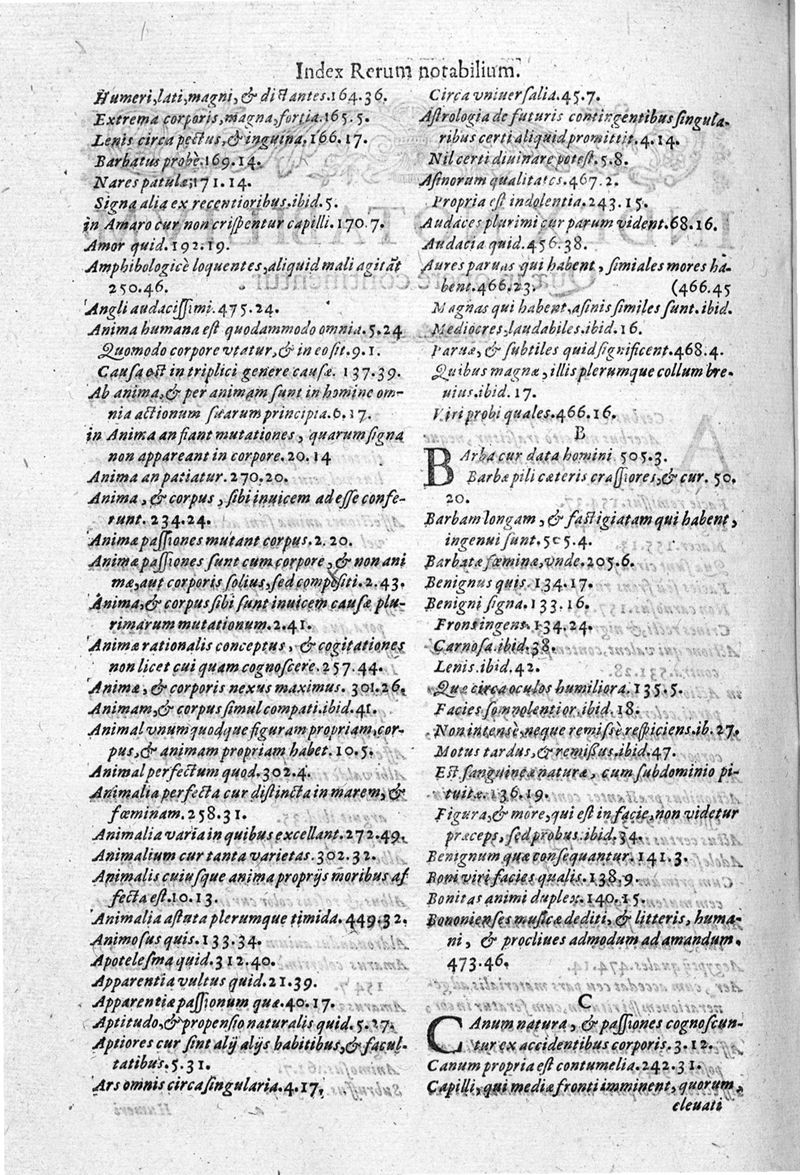 Index Rerum notabilium.
Humeri, lati, magni, & distantes. 164.36.
Extrema corporis, magna, fortia. 165.5.
Lenis circa pectus, & inguina. 166.17.
Barbatus probè. 169.14.
Nares patulæ. 171.14.
Signa alia ex recentioribus. ibid. 5.
in Amaro cur non crispentur capilli. 170.7.
Amor quid. 192.19.
Amphibologicè loquentes, aliquid mali agitãt
250.46.
Angli audacissimi. 475.24.
Anima humana est quodammodo omnia. 5.24
Quomodo corpore vtatur, & in eo sit. 9.1.
Causa est in triplici genere causæ. 137.39.
Ab anima, & per animam sunt in homine om-
nia actionum suarum principia. 6.17.
in Anima an fiant mutationes, quarum signa
non appareant in corpore. 20.14
Anima an patiatur. 270.20.
Anima, & corpus, sibi inuicem ad esse confe-
runt. 234.24.
Animæ passiones mutant corpus. 2.20.
Animæ passiones sunt cum corpore, & non ani
mæ, aut corporis solius, sed compositi. 2.43.
Anima, & corpus sibi sunt inuicem causæ plu-
rimarum mutationum. 2.41.
Animæ rationalis conceptus, & cogitationes
non licet cui quam cognoscere. 257.44.
Animæ, & corporis nexus maximus. 301.26.
Animam, & corpus simul compati. ibid. 41.
Animal vnum quodque figuram propriam, cor-
pus, & animam propriam habet. 10.5.
Animal perfectum quod. 302.4.
Animalia perfecta cur distincta in marem, &
fœminam. 258.31.
Animalia varia in quibus excellant. 272.49.
Animalium cur tanta varietas. 302.32.
Animalis cuiusque anima proprijs moribus af
fecta est. 10.13.
Animalia astuta plerumque timida. 449.32.
Animosus quis. 133.34.
Apotelesma quid. 312.40.
Apparentia vultus quid. 21.39.
Apparentia passionum quæ. 40.17.
Aptitudo, & propensio naturalis quid. 5.27.
Aptiores cur sint alij alijs habitibus, & facul-
tatibus. 5.31.
Ars omnis circa singularia. 4.17.
Circa vniuersalia. 45.7.
Astrologia de futuris contingentibus singula-
ribus certi aliquid promittit. 4.14.
Nil certi diuinare potest. 5.8.
Asinorum qualitates. 467.2.
Propria est indolentia. 243.15.
Audaces plurimi cur parum vident. 68.16.
Audacia quid. 456.38.
Aures paruas qui habent, simiales mores ha-
bent. 466.23. (466.45
Magnas qui habent, asinis similes sunt. ibid.
Mediocres, laudabiles. ibid. 16.
Paruæ, & subtiles quid significent. 468.4.
Quibus magnæ, illis plerumque collum bre-
uius. ibid. 17.
Viri probi quales. 466.16.
B
BArba cur data homini. 505.3.
Barbæ pili cæteris crassiores, & cur. 50.
20.
Barbam longam, & fastigiatam qui habent,
ingenui sunt. 505.4.
Barbatæ fœminæ, vnde. 205.6.
Benignus quis. 134.17.
Benigni signa. 133.16.
Frons ingens. 134.24.
Carnosa. ibid. 38.
Lenis. ibid. 42.
Quæ circa oculos humiliora. 135.5.
Facies somnolentior. ibid. 18.
Non intensè, neque remissè respiciens. ib. 27.
Motus tardus, & remissus. ibid. 47.
Est sanguineæ naturæ, cum subdominio pi-
tuitæ. 136.19.
Figura, & more, qui est in facie, non videtur
præceps, sed probus. ibid. 34.
Benignum quæ consequantur. 141.3.
Boni viri facies qualis. 138.9.
Bonitas animi duplex. 140.15.
Bononienses musicæ dediti, & litteris, huma-
ni, & procliues admodum ad amandum.
473.46.
C
CAnum natura, & passiones cognoscun-
tur ex accidentibus corporis. 3.12.
Canum propria est contumelia. 242.31.
Capilli, qui mediæ fronti imminent, quorum,
eleuati